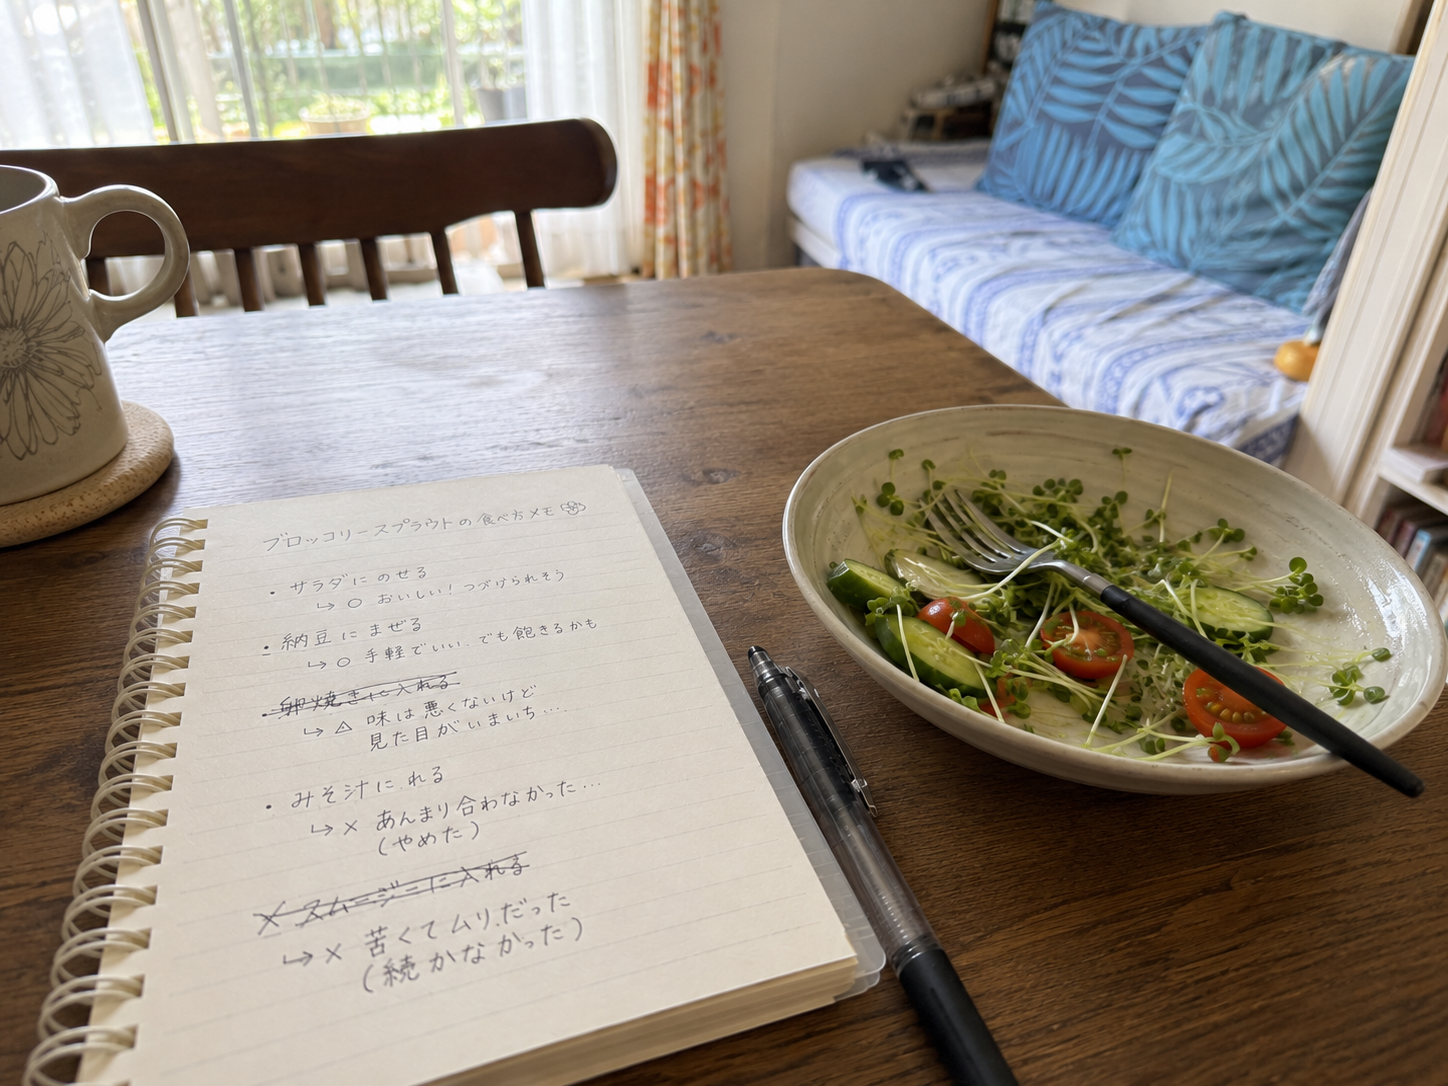 ブロッコリースプラウトの食べ方メモ
・サラダにのせる
↳ ○ おいしい! つづけられそう
・納豆にまぜる
↳ ○ 手軽でいい。でも飽きるかも
・卵焼きに入れる
↳ △ 味は悪くないけど
見た目がいまいち…
・みそ汁に れる
↳ × あんまり合わなかった…
(やめた)
× スムージーに入れる
↳ × 苦くてムリだった
(続かなかった)